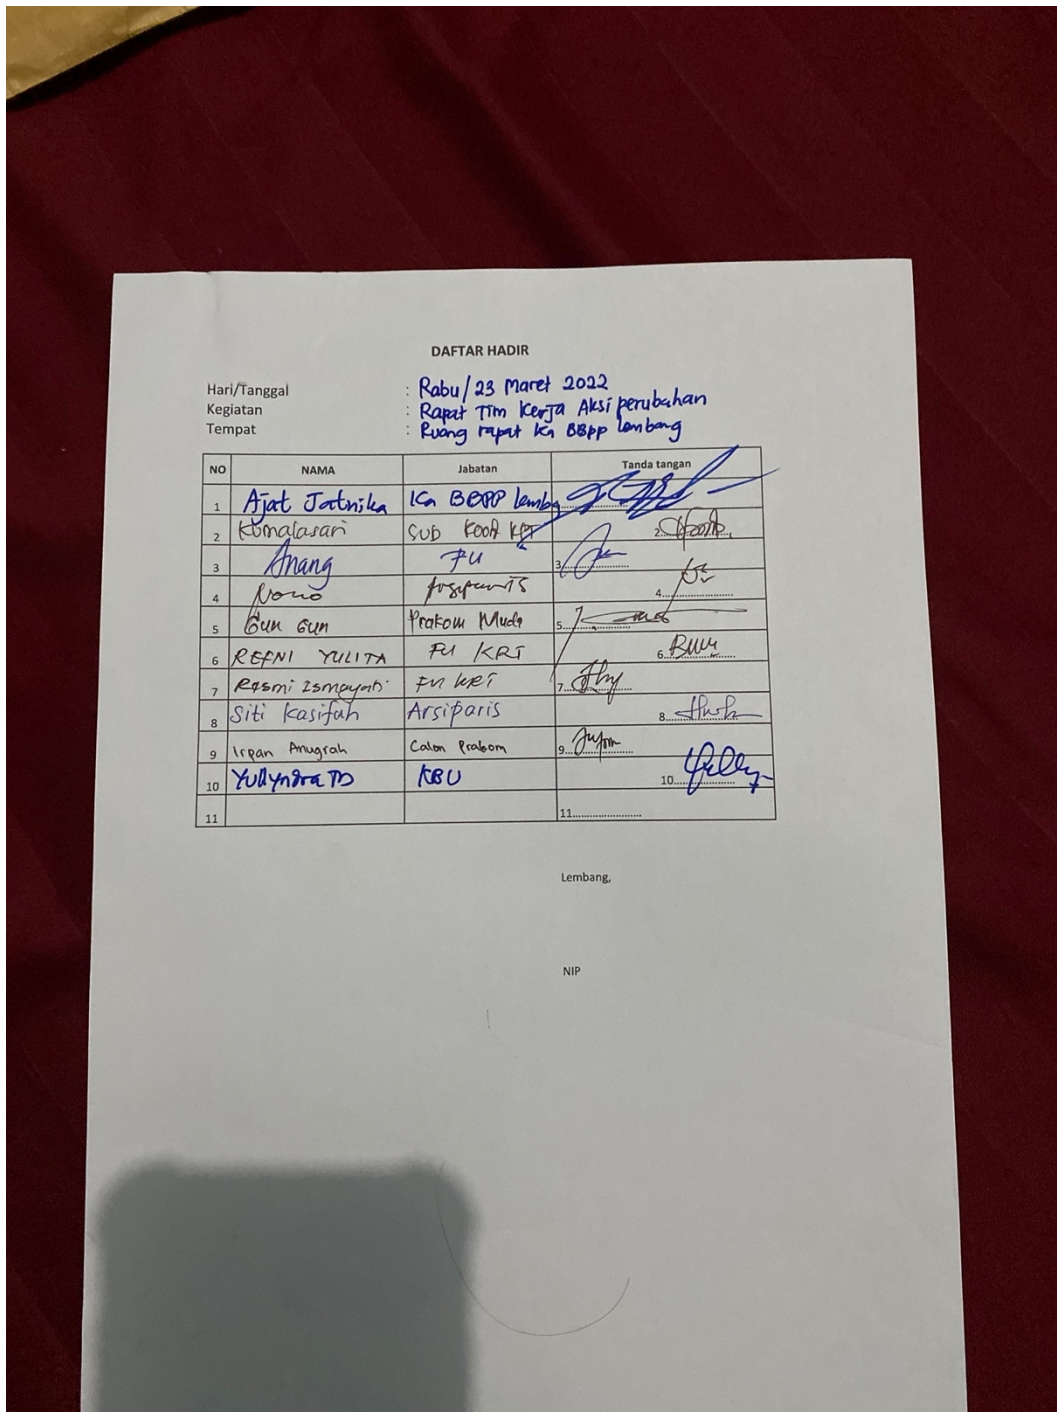 DAFTAR HADIR
Hari/Tanggal : Rabu/23 Maret 2022
Kegiatan : Rapat Tim Kerja Aksi perubahan
Tempat : Ruang rapat Ka BBpp lembang
NO NAMA Jabatan Tanda tangan
1 Ajat Jatnika Ka BBPP Lemba
2 Kumalasari SUB KOOR KRT 2
3 Anang FU 3
4 4
5 Gun Gun Prakom Muda 5
6 REFNI YULITA FU KRT 6
7 Rasmi Ismayati FU KRT 7
8 Siti Kasifah Arsiparis 8
9 Irpan Anugrah Calon Prakom 9
10 Yullyndra TD KBU 10
11 11
Lembang,
NIP